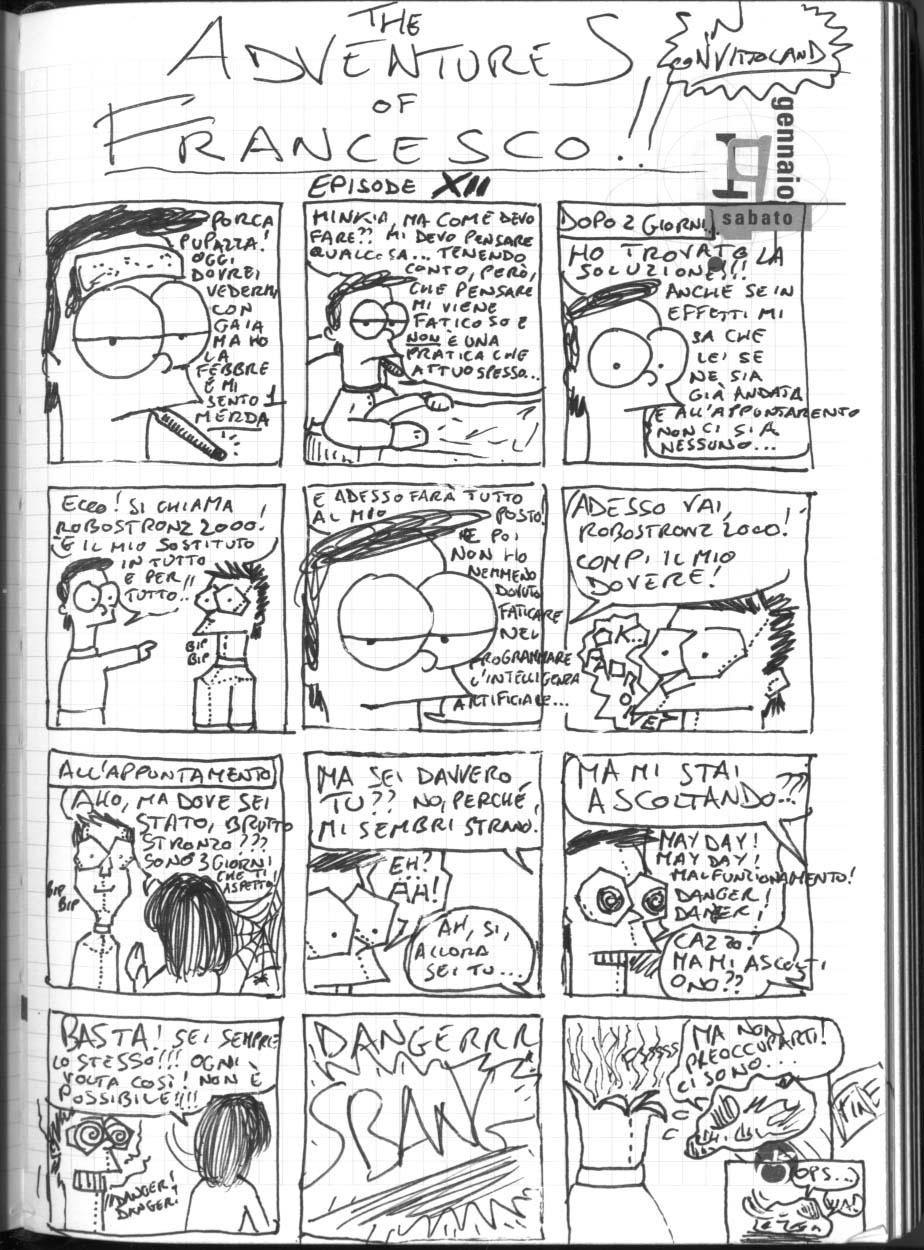 THE
ADVENTURES
OF
FRANCESCO!!
IN
CONVITTOLAND
gennaio
19
sabato
EPISODE XII
PORCA
PUPAZZA!
OGGI
DOVREI
VEDERMI
CON
GAIA
MA HO
LA
FEBBRE
E MI
SENTO 1
MERDA
MINKIA, MA COME DEVO
FARE?? MI DEVO PENSARE
QUALCOSA... TENENDO
CONTO, PERÒ,
CHE PENSARE
MI VIENE
FATICOSO E
NON È UNA
PRATICA CHE
ATTUO SPESSO...
DOPO 2 GIORNI...
HO TROVATO LA
SOLUZIONE!!!
ANCHE SE IN
EFFETTI MI
SA CHE
LEI SE
NE SIA
GIÀ ANDATA
E ALL'APPUNTAMENTO
NON CI SIA
NESSUNO...
ECCO! SI CHIAMA
ROBOSTRONZ 2000!
È IL MIO SOSTITUTO
IN TUTTO
E PER
TUTTO!!
BIP
BIP
E ADESSO FARÀ TUTTO
AL MIO
POSTO!
E POI
NON HO
NEMMENO
DOVUTO
FATICARE
NEL
PROGRAMMARE
L'INTELLIGENZA
ARTIFICIALE...
ADESSO VAI,
ROBOSTRONZ 2000!
COMPI IL MIO
DOVERE!
OK..
ALL'APPUNTAMENTO
AHO, MA DOVE SEI
STATO, BRUTTO
STRONZO???
SONO 3 GIORNI
CHE TI
ASPETTO!
BIP
BIP
MA SEI DAVVERO
TU?? NO, PERCHÉ
MI SEMBRI STRANO.
EH?
AH!
AH, SI,
ALLORA
SEI TU...
MA MI STAI
ASCOLTANDO..??
MAYDAY!
MAYDAY!
MALFUNZIONAMENTO!
DANGER!
DANGER!
CAZZO!
MA MI ASCOLTI
O NO??
BASTA! SEI SEMPRE
LO STESSO!!! OGNI
VOLTA COSÌ! NON È
POSSIBILE!!!!
DANGER!
DANGER!
DANGERRR
SBANG
CSSSSS
MA NON
PREOCCUPARTI!
CI SONO...
FINE
OPS...